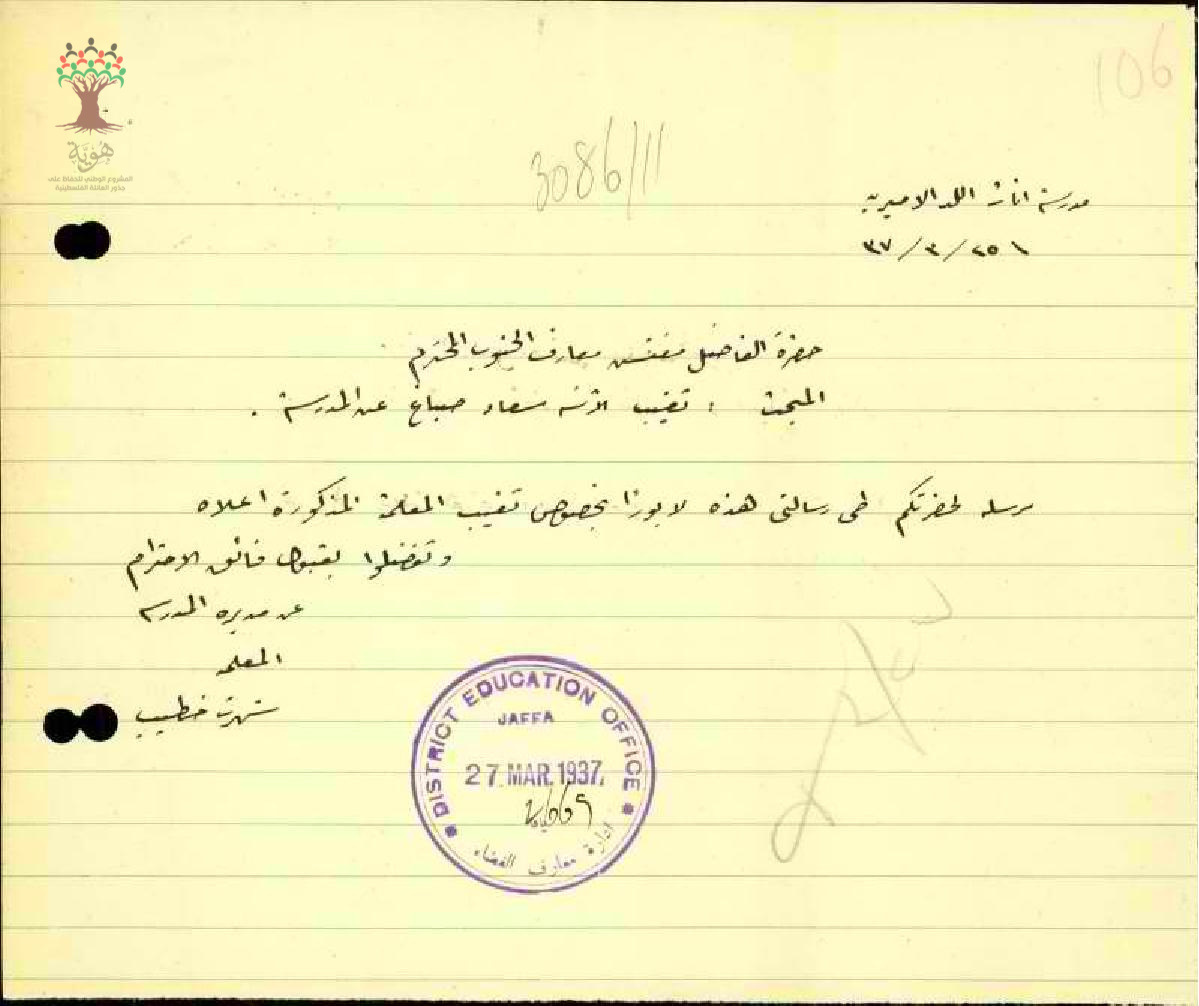 106
3086/11
هُوِيَّة
المشروع الوطني للحفاظ على
جذور العائلة الفلسطينية
مدرسة اناث اللد الاميرية
٣٧/٣/٢٥
حضرة الفاضل مفتش معارف الجنوب المحترم
المبحث : تغيب الآنسه سعاد صباغ عن المدرسة .
مرسله لحضرتكم طي رسالتي هذه لابورتا بخصوص تغيب المعلمة المذكورة اعلاه
وتفضلوا بقبول فائق الاحترام
عن مديرة المدرسه
المعلمه
شهرت خطيب
DISTRICT EDUCATION OFFICE
JAFFA
27 MAR. 1937.
2669
ادارة معارف القضاء